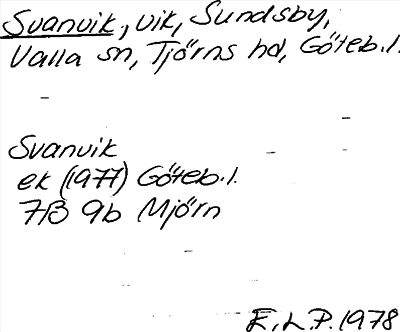 Svanvik, vik, Sundsby,
Valla sn, Tjörns hd, Göteb.l.
Svanvik
ek (1977) Göteb.l.
7B 9b Mjörn
E.L.P. 1978